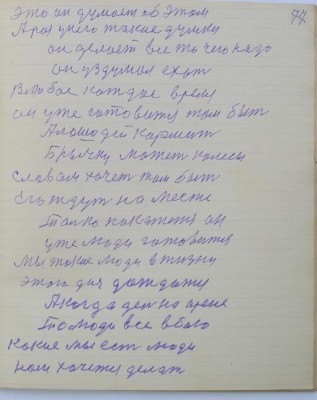 77
это он думает об этом
А раз у него такие думки
он делает все то чего надо
он уздумал ехат
В любое каждые время
он уже готовится там быт
А лошодей кармит
Бричку мажет колесы
словам хочет там быт
Его ждут на месте
Толко покажется он
уже люди готовится
Мы такие люди в жизни
этого дня дождатся
А когда ден на арене
То люди все в бою
Какие мы ест люди
нам хочется делат